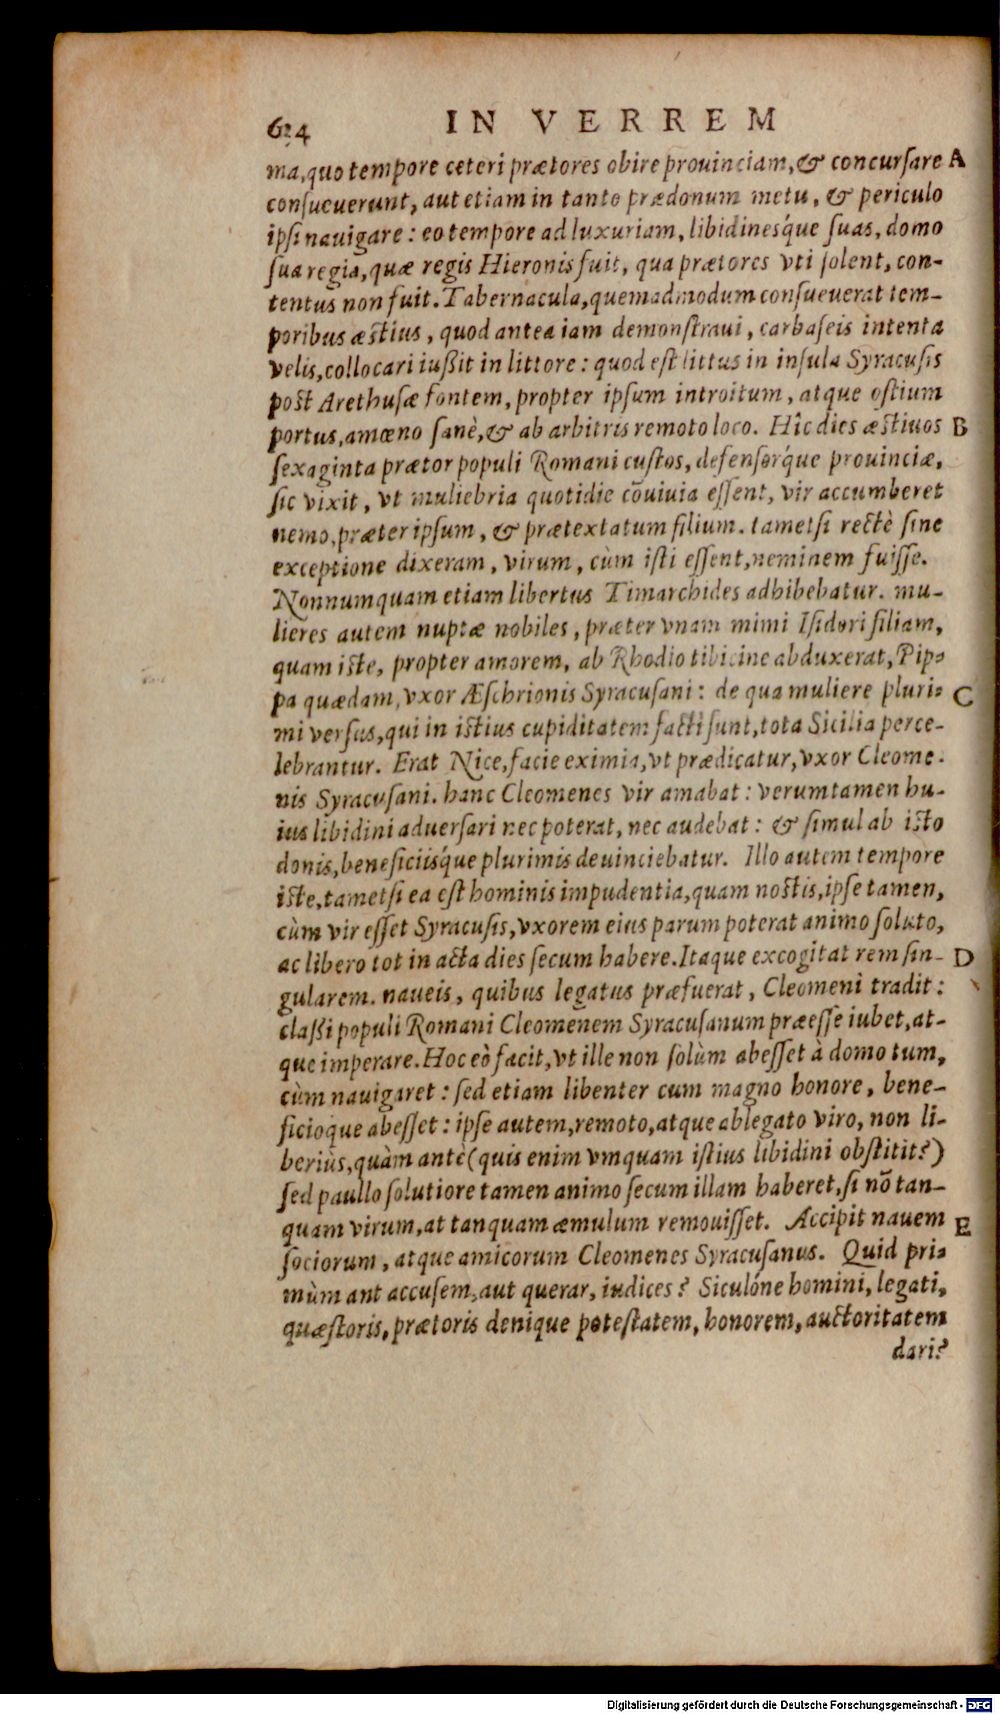 624 IN VERREM
ma, quo tempore ceteri prætores obire prouinciam, & concursare A
consueuerunt, aut etiam in tanto prædonum metu, & periculo
ipsi nauigare: eo tempore ad luxuriam, libidinesq́ue suas, domo
sua regia, quæ regis Hieronis fuit, qua prætores vti solent, con-
tentus non fuit. Tabernacula, quemadmodum consueuerat tem-
poribus æstiuis, quod antea iam demonstraui, carbaseis intenta
velis, collocari iußit in littore: quod est littus in insula Syracusis
post Arethusæ fontem, propter ipsum introitum, atque ostium
portus, amœno sanè, & ab arbitris remoto loco. Hîc dies æstiuos B
sexaginta prætor populi Romani custos, defensorq́ue prouinciæ,
sic vixit, vt muliebria quotidie cōuiuia essent, vir accumberet
nemo, præter ipsum, & prætextatum filium. tametsi rectè sine
exceptione dixeram, virum, cùm isti essent, neminem fuisse.
Nonnumquam etiam libertus Timarchides adhibebatur. mu-
lieres autem nuptæ nobiles, præter vnam mimi Isidori filiam,
quam iste, propter amorem, ab Rhodio tibicine abduxerat, Pip-
pa quædam, vxor Æschrionis Syracusani: de qua muliere pluri- C
mi versus, qui in istius cupiditatem facti sunt, tota Sicilia perce-
lebrantur. Erat Nice, facie eximia, vt prædicatur, vxor Cleome-
nis Syracusani. hanc Cleomenes vir amabat: verumtamen hu-
ius libidini aduersari nec poterat, nec audebat: & simul ab isto
donis, beneficiisq́ue plurimis deuinciebatur. Illo autem tempore
iste, tametsi ea est hominis impudentia, quam nostis, ipse tamen,
cùm vir esset Syracusis, vxorem eius parum poterat animo soluto,
ac libero tot in acta dies secum habere. Itaque excogitat rem sin- D
gularem. naueis, quibus legatus præfuerat, Cleomeni tradit:
claßi populi Romani Cleomenem Syracusanum præesse iubet, at-
que imperare. Hoc eò facit, vt ille non solùm abesset à domo tum,
cùm nauigaret: sed etiam libenter cum magno honore, bene-
ficioque abesset: ipse autem, remoto, atque ablegato viro, non li-
beriùs, quàm antè (quis enim vmquam istius libidini obstitit?)
sed paullo solutiore tamen animo secum illam haberet, si nō tan-
quam virum, at tanquam æmulum remouisset. Accipit nauem E
sociorum, atque amicorum Cleomenes Syracusanus. Quid pri-
mùm ant accusem, aut querar, iudices? Siculóne homini, legati,
quæstoris, prætoris denique potestatem, honorem, auctoritatem
dari?
Digitalisierung gefördert durch die Deutsche Forschungsgemeinschaft - DFG